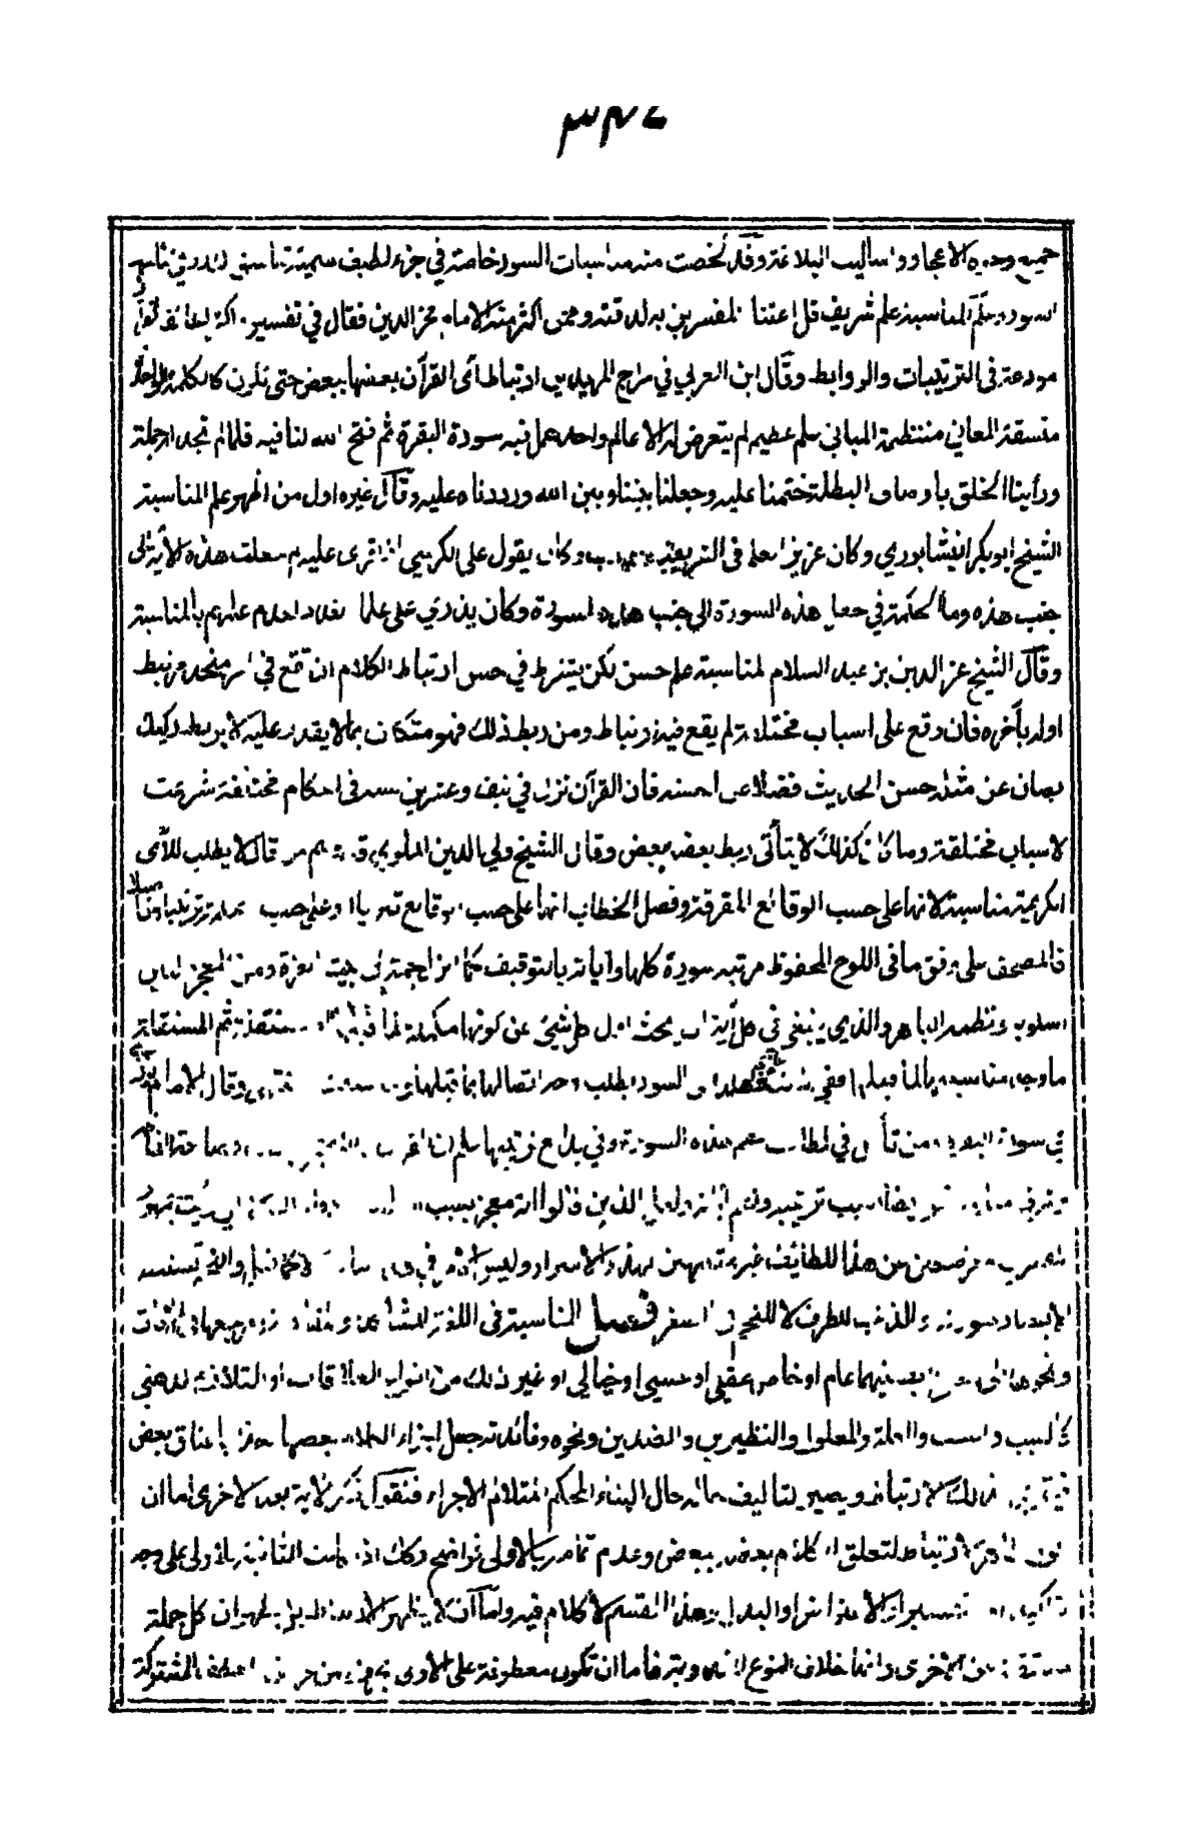 جميع وجوه الاعجاز واساليب البلاغة وقد لخصت منه مناسبات السور خاصة في جزء لطيف سميته تناسق الدرر في تناسب
السور علم المناسبة علم شريف قل اعتنا المفسرين به لدقته وممن اكثر منه الامام فخر الدين فقال في تفسيره اكثر لطائف القرآن
مودعة في الترتيبات والروابط وقال ابن العربي في سراج المريدين ارتباط آى القرآن بعضها ببعض حتى تكون كالكلمة الواحدة
متسقة المعاني منتظمة المباني علم عظيم لم يتعرض له الا عالم واحد عمل فيه سورة البقرة ثم فتح الله لنا فيه فلما لم نجد له حملة
ورأينا الخلق باوصاف البطلة ختمنا عليه وجعلناه بيننا وبين الله ورددناه عليه وقال غيره اول من اظهر علم المناسبة
الشيخ ابو بكر النيشابوري وكان غزير العلم في الشريعة والادب وكان يقول على الكرسي اذا قرى عليه لم جعلت هذه الآية الى
جنب هذه وما الحكمة في جعل هذه السورة الى جنب هذه السورة وكان يزري على علما بغداد لعدم علمهم بالمناسبة
وقال الشيخ عز الدين بن عبد السلام المناسبة علم حسن لكن يشترط في حسن ارتباط الكلام ان يقع في امر متحد مرتبط
اوله بآخره فان وقع على اسباب مختلفة لم يقع فيه ارتباط ومن ربط ذلك فهو متكلف بما لا يقدر عليه الا بربط ركيك
يصان عن مثله حسن الحديث فضلا عن احسنه فان القرآن نزل في نيف وعشرين سنة في احكام مختلفة شرعت
لاسباب مختلفة وما كان كذلك لا يتأتى ربط بعضه ببعض وقال الشيخ ولي الدين الملوي قد وهم من قال لا يطلب للآى
الكريمة مناسبة لانها على حسب الوقائع المفرقة وفصل الخطاب انها على حسب الوقايع تنزيلا وعلى حسب الحكمة ترتيبا وتأصيلا
فالمصحف على وفق ما في اللوح المحفوظ مرتبة سوره كلها وآياته بالتوقيف كما انزل جملة الى بيت العزة ومن المعجز البين
اسلوبه ونظمه الباهر والذي ينبغي في كل آية ان يبحث اول كل شيئ عن كونها مكملة لما قبلها او مستقلة ثم المستقلة
ما وجه مناسبتها لما قبلها ففي ذلك علم جم وهكذا في السور يطلب وجه اتصالها بما قبلها وما سيقت له وقال الامام
في سورة البقرة من تأمل في لطائف نظم هذه السورة وفي بدايع ترتيبها علم ان القرآن كما انه معجز بحسب فصاحة الفاظه
وشرف معانيه فهو ايضا بسبب ترتيبه ونظم آياته ولعل الذين قالوا انه معجز بسبب اسلوبه ارادوا ذلك الا اني رأيت جمهور
المفسرين معرضين عن هذه اللطائف غير متنبهين لهذه الاسرار وليس الامر في هذا الباب الا كما قيل والنجم تستصغر
الابصار صورته والذنب للطرف لا للنجم في الصغر فصل المناسبة في اللغة المشاكلة والمقاربة ومرجعها في الآيات
ونحوها الى معنى رابط بينهما عام او خاص عقلي او حسي او خيالي او غير ذلك من انواع العلاقات او التلازم الذهني
كالسبب والمسبب والعلة والمعلول والنظيرين والضدين ونحوه وفائدته جعل اجزاء الكلام بعضها آخذا باعناق بعض
فيقوى بذلك الارتباط ويصير التاليف حاله حال البناء المحكم المتلائم الاجزاء فنقول ذكر الآية بعد الاخرى اما ان
يكون ظاهر الارتباط لتعلق الكلام بعضه ببعض وعدم تمامه بالاولى فواضح وكذلك اذا كانت الثانية للاولى على وجه
التاكيد او التفسير او الاعتراض او البدل وهذا القسم لا كلام فيه واما ان لا يظهر الارتباط بل يظهر ان كل جملة
مستقلة عن الاخرى وانها خلاف النوع المبدوء به فاما ان تكون معطوفة على الاولى بحرف من حروف العطف المشتركة